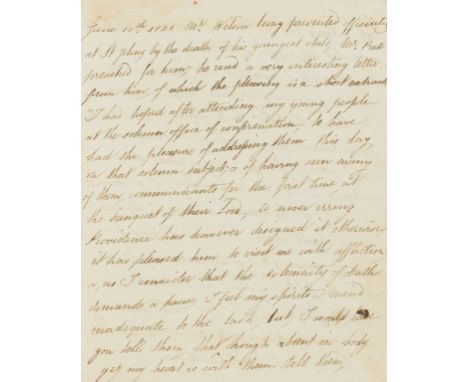 June 10th Mr. Wilson being prevented officiating
at St Johns by the death of his youngest child, Mr. Pratt
preached for him, he read a very interesting letter
from him of which the following is a short extract,
"I had hoped after attending my young people
at the solemn office of confirmation, to have
had the pleasure of addressing them this day,
on that solemn subject, & of having seen many
of them communicants for the first time at
the banquet of their Lord; a never erring
Providence has however designed it otherwise,
it has pleased him to visit me with affliction
&, as I consider that the solemnity of death
demands a pause, I feel my spirits & mind
inadequate to the task, but I would have
you tell them, that though absent in body
yet my heart is with them, tell them,